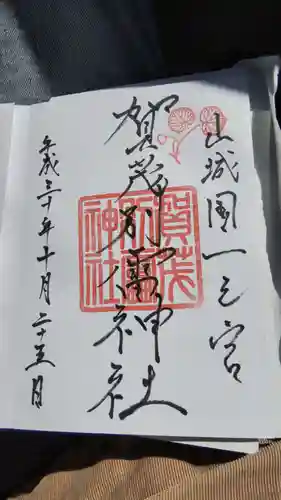 山城国一之宮
賀茂別雷神社
平成三十年十月二十五日
賀茂
別雷
神社